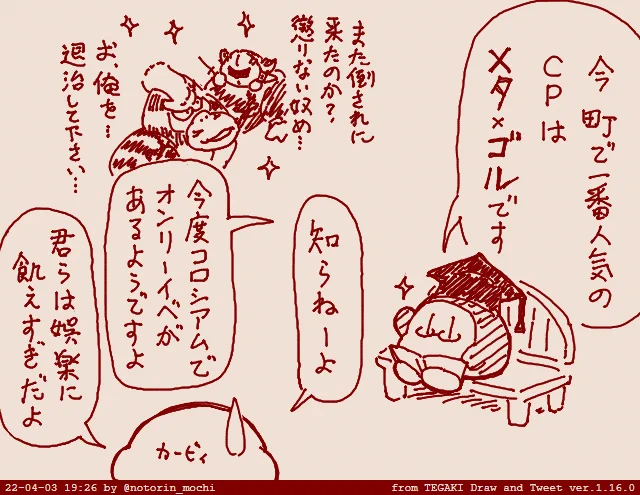 今町で一番人気の
CPは
メタ×ゴルです
また倒されに
来たのか?
懲りない奴め…
お、俺を…
退治して下さい…
知らねーよ
今度コロシアムで
オンリーイベが
あるようですよ
君らは娯楽に
飢えすぎだよ
カービィ
22-04-03 19:26 by @notorin_mochi
from TEGAKI Draw and Tweet ver.1.16.0